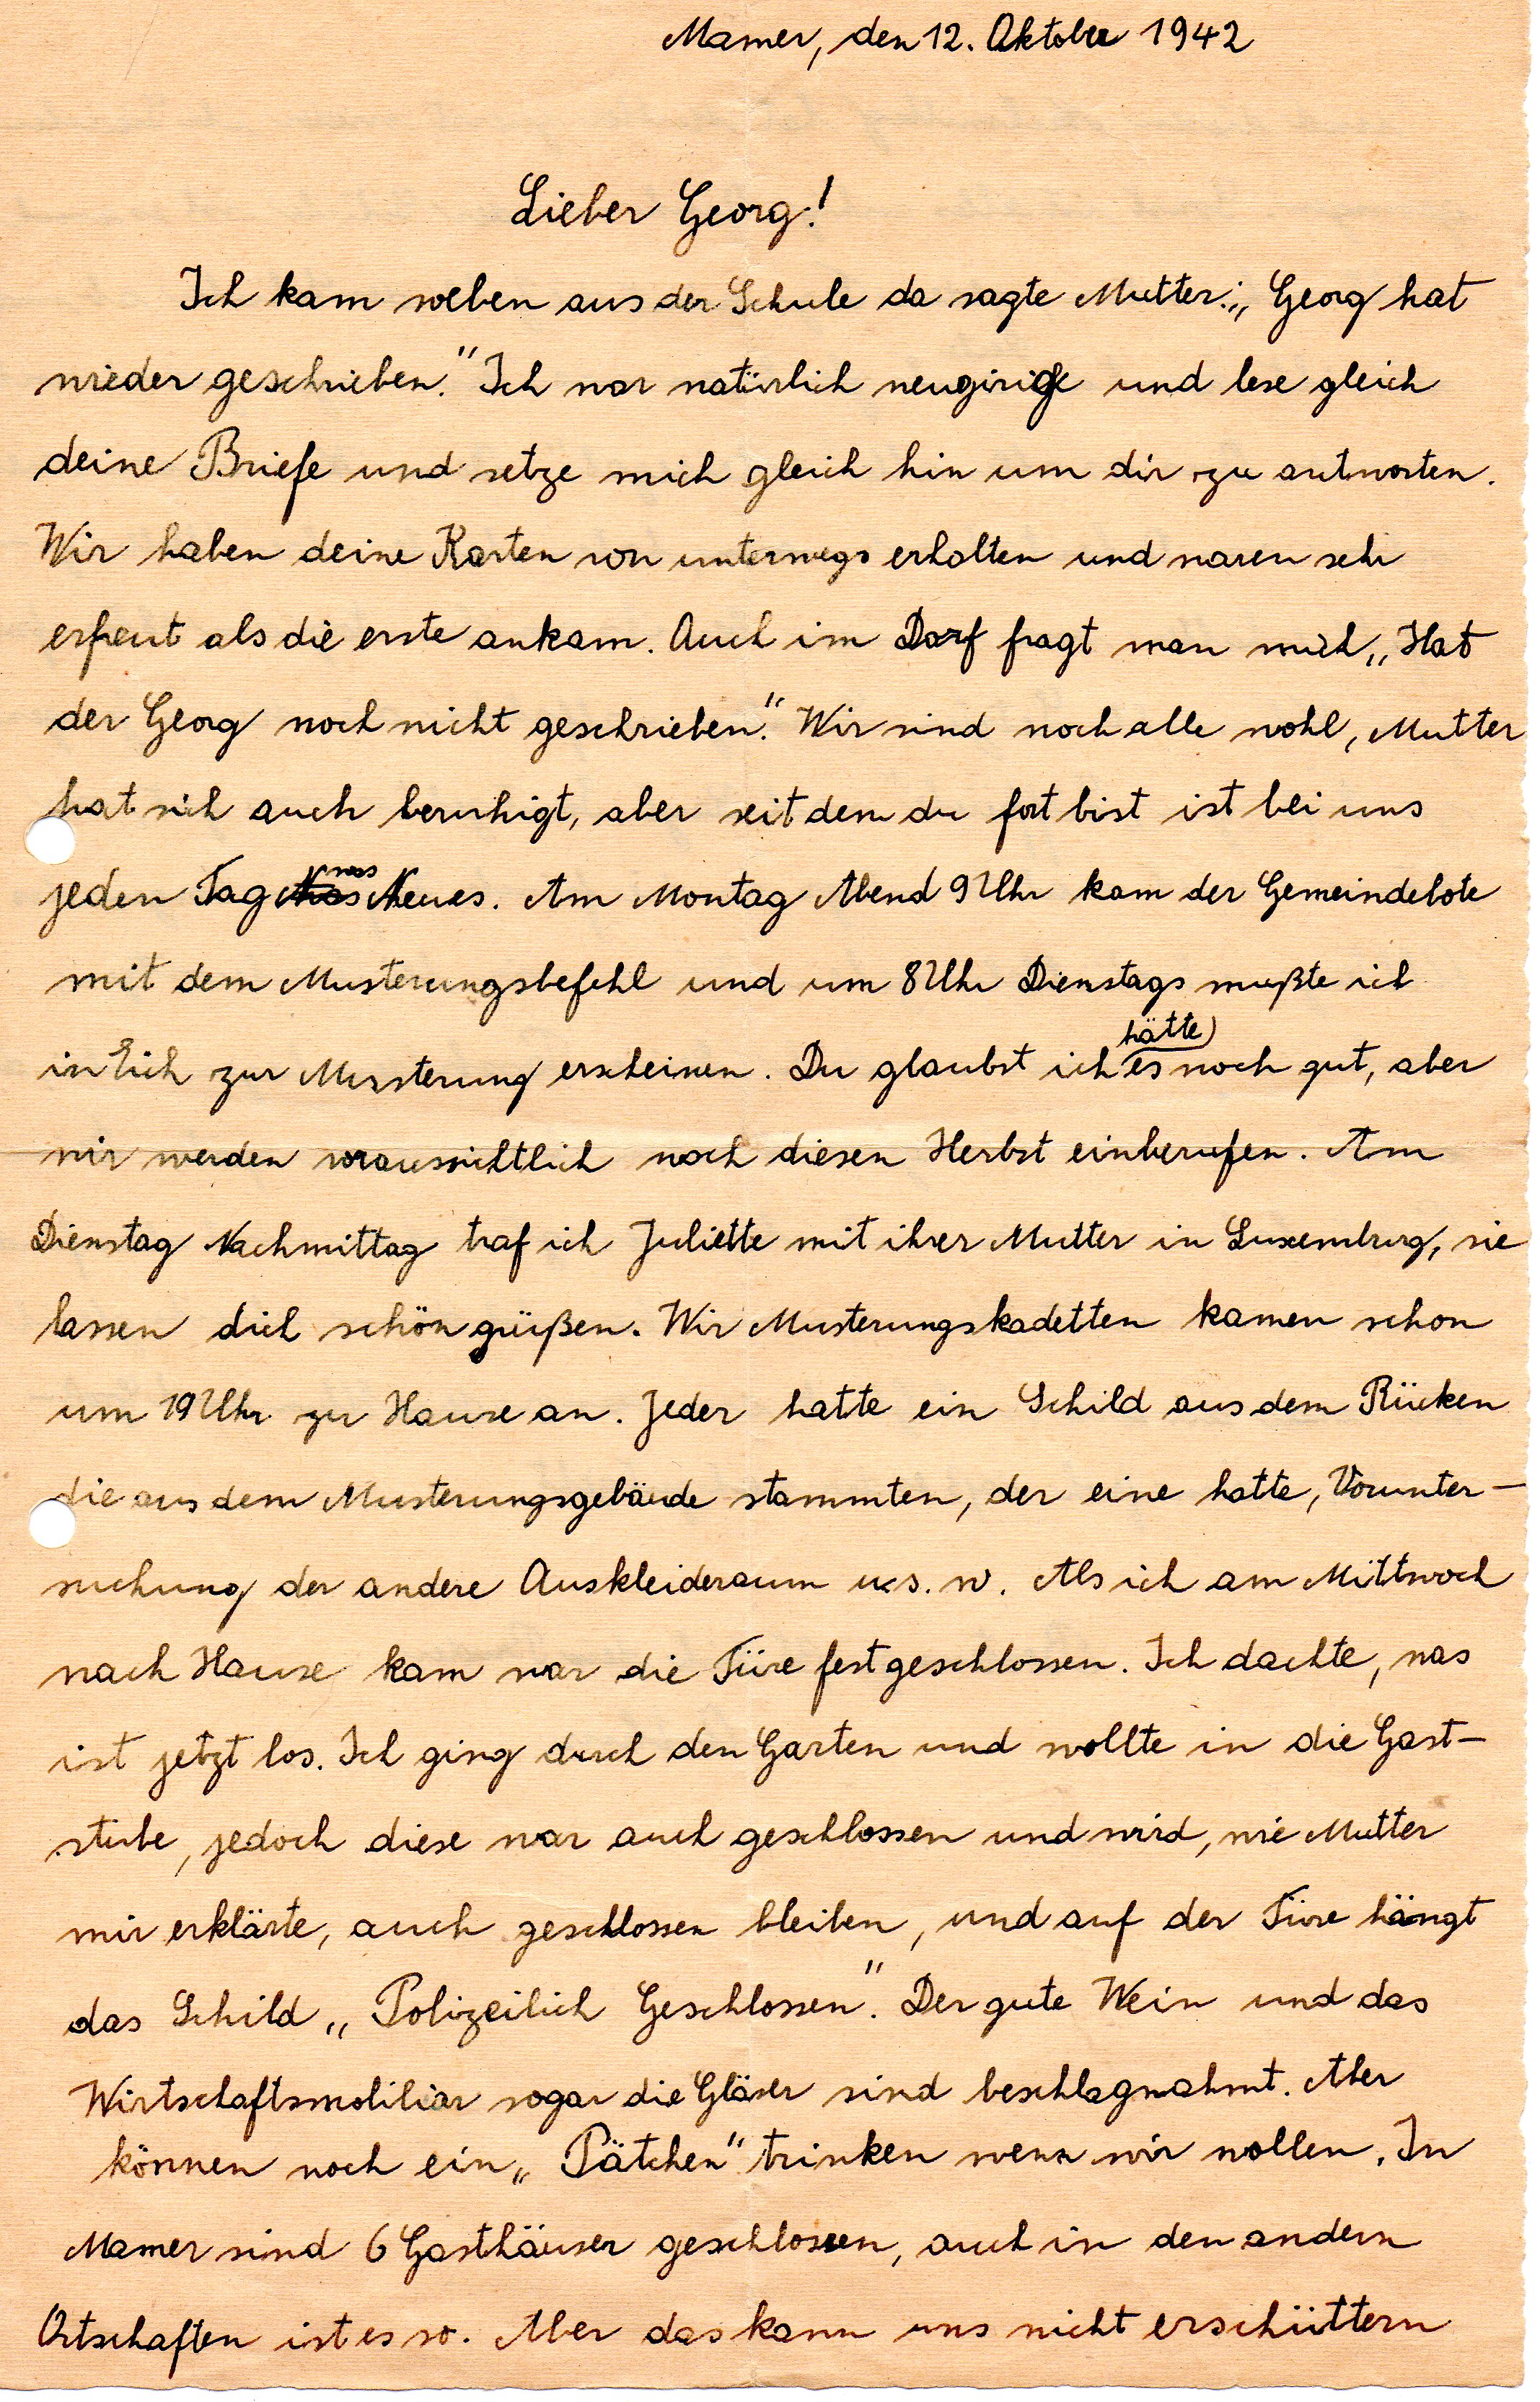 Mamer, den 12. Oktobre 1942
Lieber Georg!
Ich kam soeben aus der Schule da sagte Mutter: „Georg hat
wieder geschrieben." Ich war natürlich neugirig und lese gleich
deine Briefe und setze mich gleich hin um dir zu antworten.
Wir haben deine Karten von unterwegs erhalten und waren sehr
erfreut als die erste ankam. Auch im Dorf fragt man mich „Hat
der Georg noch nicht geschrieben." Wir sind noch alle wohl, Mutter
hat sich auch beruhigt, aber seit dem du fort bist ist bei uns
jeden Tag was Neues. Am Montag Abend 9 Uhr kam der Gemeindebote
mit dem Musterungsbefehl und um 8 Uhr Dienstags mußte ich
in Eich zur Musterung erscheinen. Du glaubst ich hätte es noch gut, aber
wir werden voraussichtlich noch diesen Herbst einberufen. Am
Dienstag Nachmittag traf ich Juliette mit ihrer Mutter in Luxemburg, sie
lassen dich schön grüßen. Wir Musterungskadetten kamen schon
um 19 Uhr zu Hause an. Jeder hatte ein Schild aus dem Rücken
die aus dem Musterungsgebäude stammten, der eine hatte, Vorunter-
suchung der andere Auskleideraum u.s.w. Als ich am Mittwoch
nach Hause kam war die Türe fest geschlossen. Ich dachte, was
ist jetzt los. Ich ging durch den Garten und wollte in die Gast-
stube, jedoch diese war auch geschlossen und wird, wie Mutter
mir erklärte, auch geschlossen bleiben, und auf der Türe hängt
das Schild „Polizeilich Geschlossen". Der gute Wein und das
Wirtschaftsmobiliar sogar die Gläser sind beschlagnahmt. Aber
können noch ein „Pätchen" trinken wenn wir wollen. In
Mamer sind 6 Gasthäuser geschlossen, auch in den andern
Ortschaften ist es so. Aber das kann uns nicht erschüttern